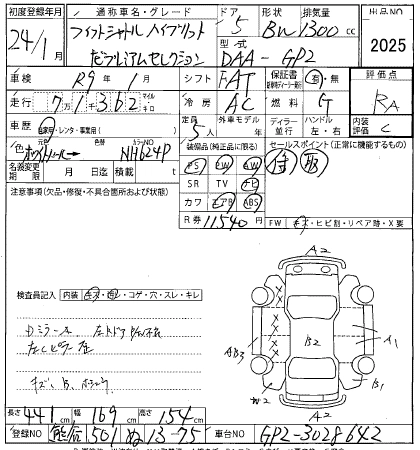 初度登録年月 通称車名・グレード ドア 形状 排気量 出品No
24/1月 フィットシャトル ハイブリット だプレミアムセレクション 5 Bw 1300cc 2025
型式 DAA-GP2
車検 R9年 1月 シフト FAT 保証書 有・無 評価点
走行 7万1千362 マイル キロ 冷房 AC 燃料 G RA
車歴 自家用・レンタ・事業用( ) 定員 5人 外車モデル 年 ディーラー 並行 ハンドル 左・右 内装評価 C
色 元色 ホワイトパール → 色替 カラーNo NH624P
装備品(純正品に限る) セールスポイント(正常に機能するもの)
名義変更期限 月 日迄 積載 t
PS PW AW 
SR TV ナビ
カワ エアB ABS
注意事項(欠品・修復・不具合箇所および状態)
R券 11540円
FW キズ・ヒビ割・リペア跡・X要
A2
検査員記入 内装 キズ・汚レ・コゲ・穴・スレ・キレ
B2
AB3
A1
W2
B1
A2
キズ、B、
長さ 441cm 幅 169cm 高さ 154cm
登録No 熊谷 501 ぬ 13-75 車台No GP2-3028642